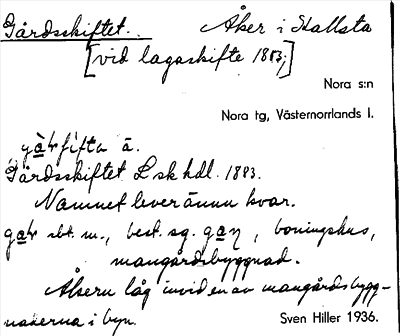 Gårdsskiftet. Åker i Stallsta
[vid lagaskifte 1883;]
Nora s:n
Nora tg, Västernorrlands l.
Gårdsskiftet L sk hdl. 1883.
Namnet lever ännu kvar.
sbt. m., best. sg. , boningshus,
mangårdsbyggnad.
Åkern låg invid en av mangårdsbygg-
naderna i byn.
Sven Hiller 1936.